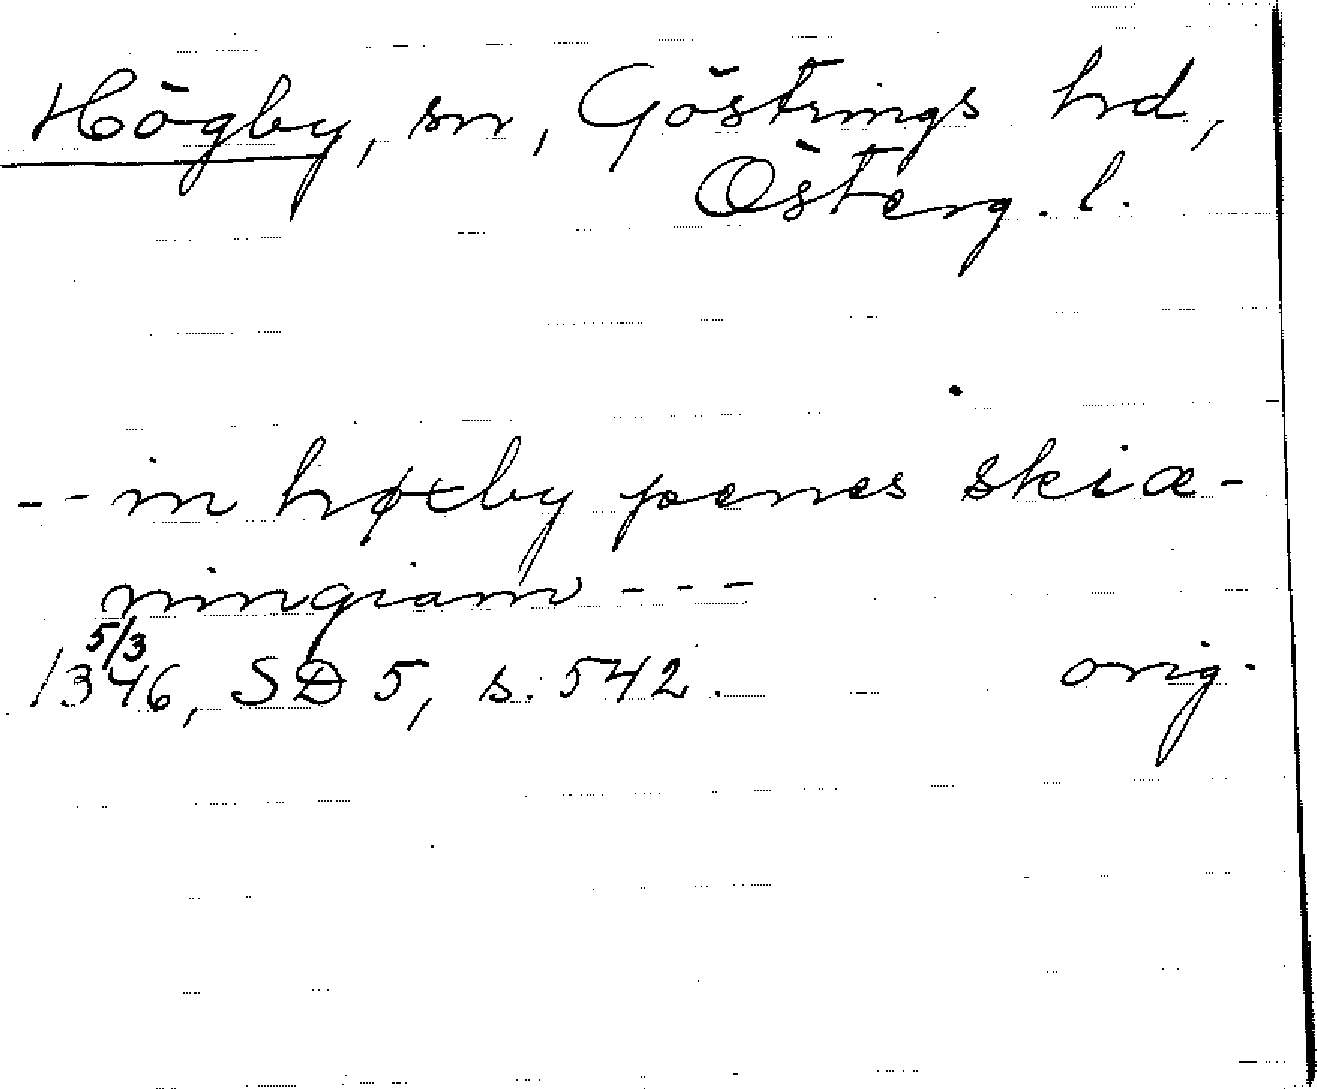 Högby, sn, Göstrings hrd,
Österg. l.
-- in høxby penes skiæ-
ningiam ---
5/3
1346, SD 5, s. 542. orig.